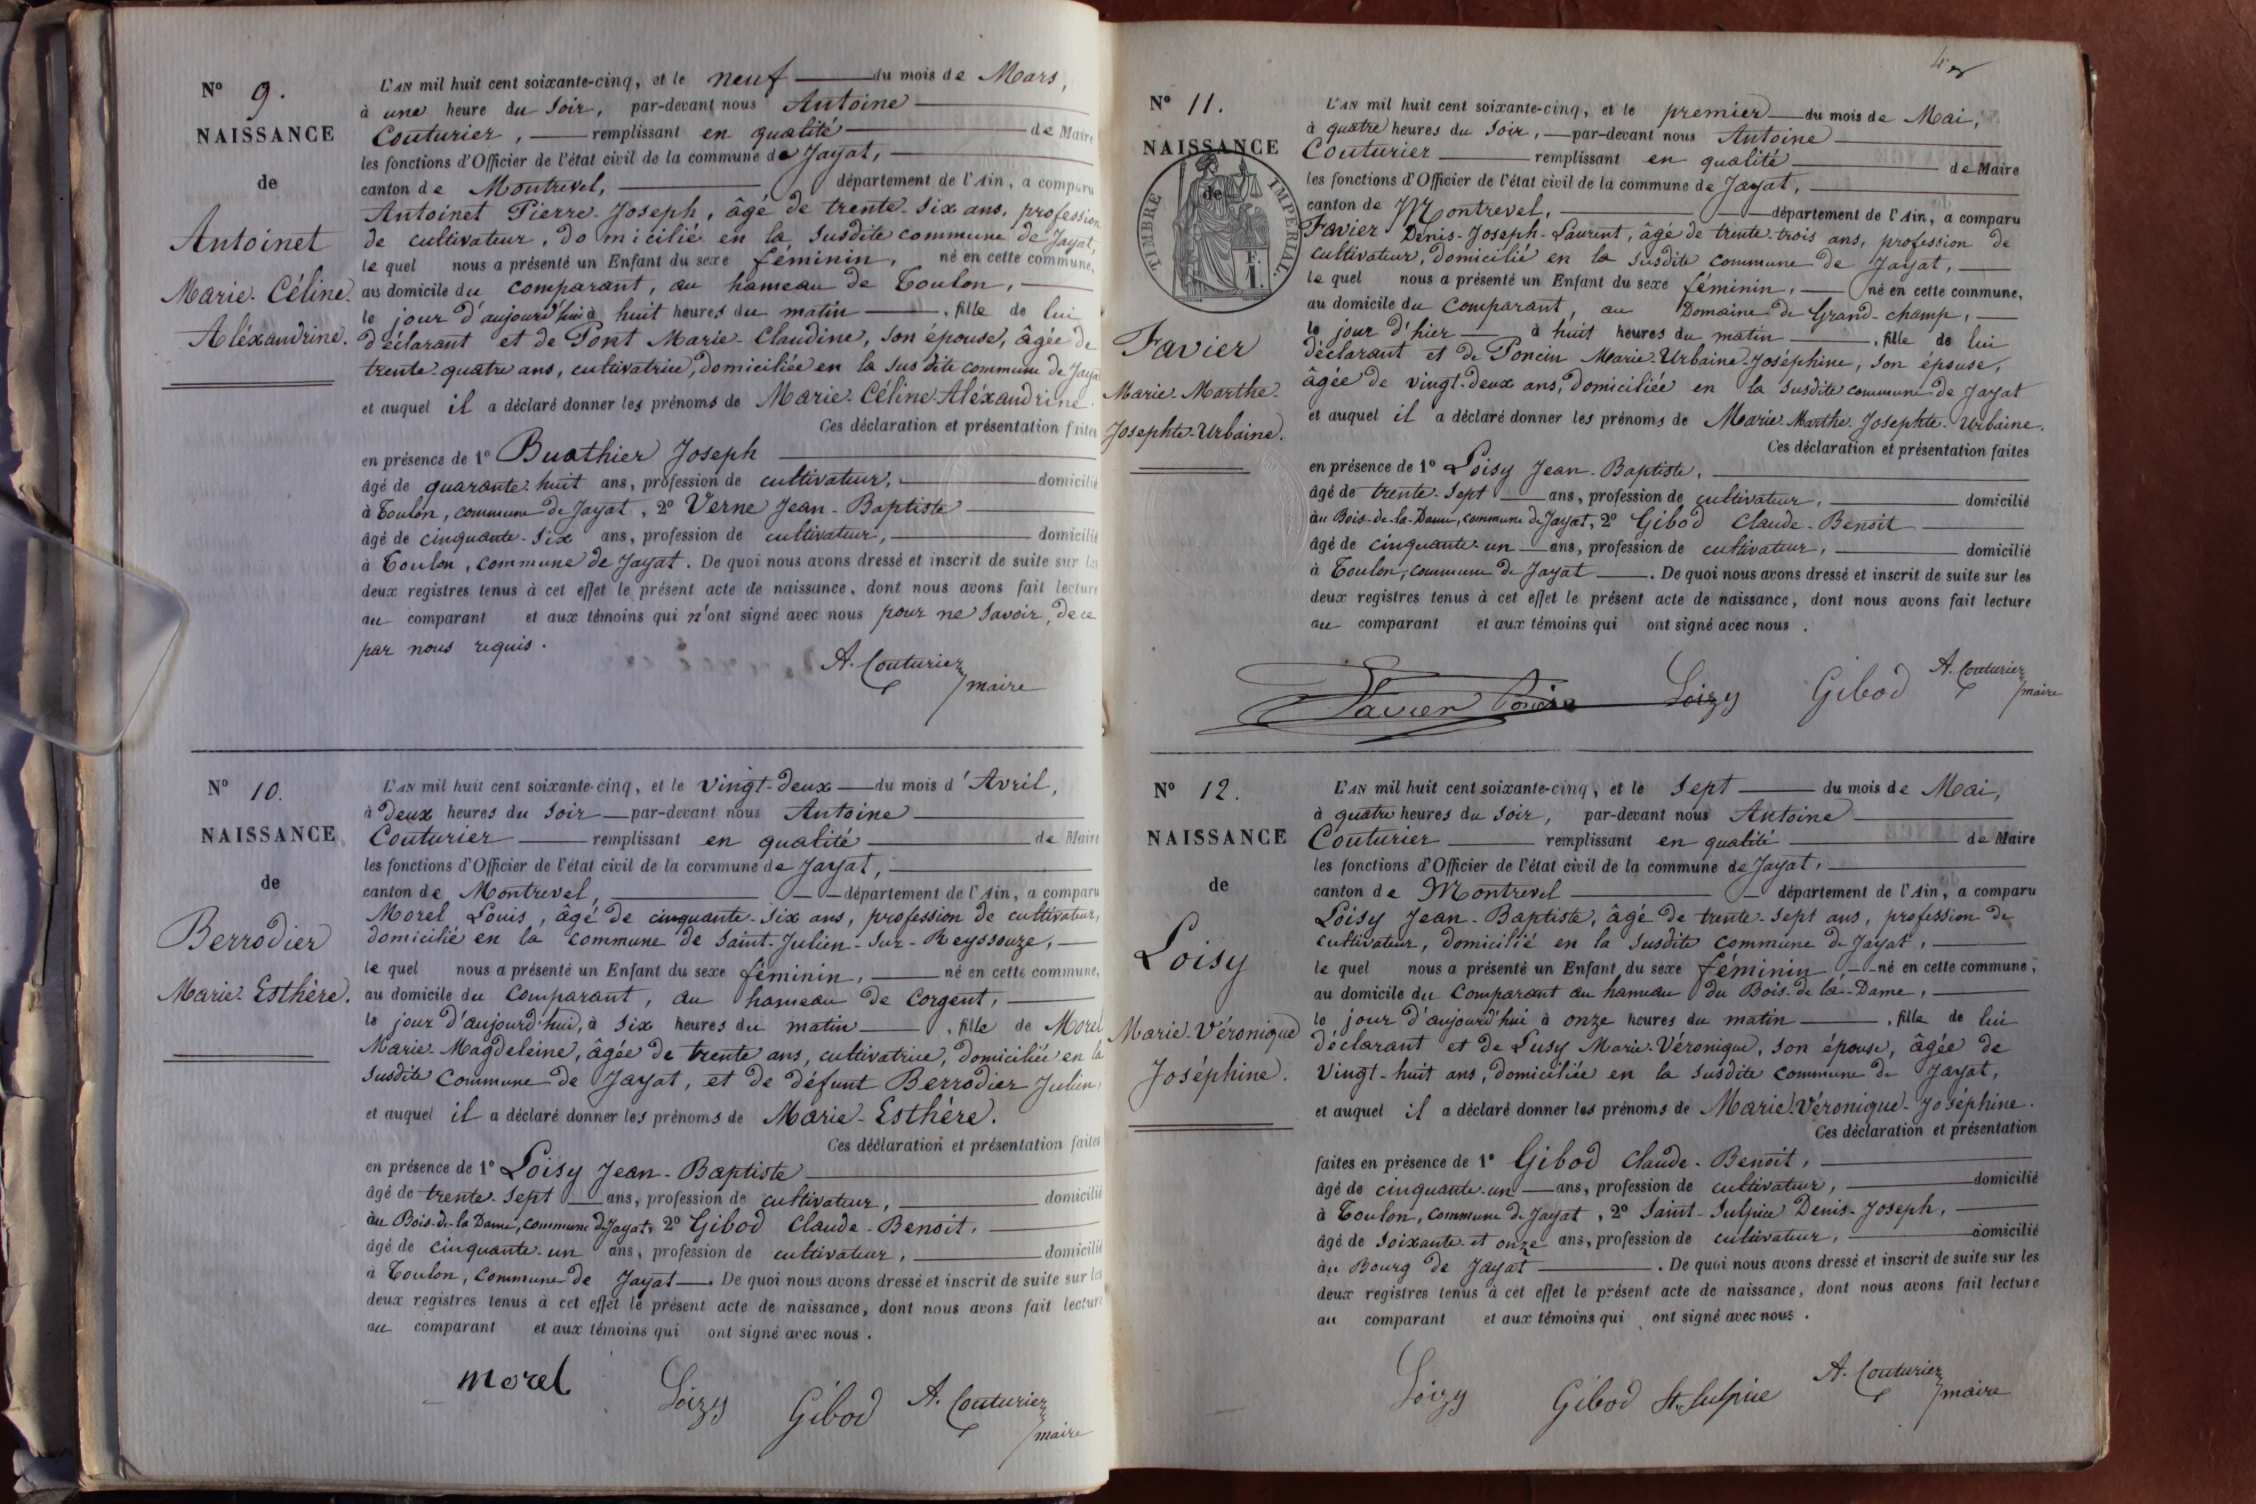 N° 9.
NAISSANCE
de
Antoinet
Marie-Céline-
Aléxandrine.
L'AN mil huit cent soixante-cinq, et le neuf du mois de Mars,
à une heure du soir, par-devant nous Antoine
Couturier, remplissant en qualité de Maire
les fonctions d'Officier de l'état civil de la commune de Jayat,
canton de Montrevel, département de l'Ain, a comparu
Antoinet Pierre-Joseph, âgé de trente-six ans, profession
de cultivateur, domicilié en la susdite commune de Jayat,
le quel nous a présenté un Enfant du sexe féminin, né en cette commune,
au domicile du comparant, au hameau de Toulon,
le jour d'aujourd'hui à huit heures du matin, fille de lui
déclarant et de Pont Marie-Claudine, son épouse, âgée de
trente-quatre ans, cultivatrice, domiciliée en la susdite commune de Jayat
et auquel il a déclaré donner les prénoms de Marie-Céline-Aléxandrine.
Ces déclaration et présentation faites
en présence de 1° Buathier Joseph
âgé de quarante-huit ans, profession de cultivateur, domicilié
à Toulon, commune de Jayat, 2° Verne Jean-Baptiste
âgé de cinquante-six ans, profession de cultivateur, domicilié
à Toulon, commune de Jayat. De quoi nous avons dressé et inscrit de suite sur les
deux registres tenus à cet effet le présent acte de naissance, dont nous avons fait lecture
au comparant et aux témoins qui n'ont signé avec nous pour ne savoir, de ce
par nous requis.
A. Couturier
maire
N° 10.
NAISSANCE
de
Berrodier
Marie-Esthère.
L'AN mil huit cent soixante-cinq, et le vingt-deux du mois d'Avril,
à deux heures du soir par-devant nous Antoine
Couturier remplissant en qualité de Maire
les fonctions d'Officier de l'état civil de la commune de Jayat,
canton de Montrevel, département de l'Ain, a comparu
Morel Louis, âgé de cinquante-six ans, profession de cultivateur,
domicilié en la commune de Saint-Julien-sur-Reyssouze,
le quel nous a présenté un Enfant du sexe féminin, né en cette commune,
au domicile du comparant, au hameau de Corgent,
le jour d'aujourd'hui, à six heures du matin, fille de Morel
Marie-Magdeleine, âgée de trente ans, cultivatrice, domiciliée en la
susdite commune de Jayat, et de défunt Berrodier Julien,
et auquel il a déclaré donner les prénoms de Marie-Esthère.
Ces déclaration et présentation faites
en présence de 1° Loisy Jean-Baptiste
âgé de trente-sept ans, profession de cultivateur, domicilié
au Bois-de-la Dame, commune de Jayat, 2° Gibod Claude-Benoit,
âgé de cinquante-un ans, profession de cultivateur, domicilié
à Toulon, commune de Jayat. De quoi nous avons dressé et inscrit de suite sur les
deux registres tenus à cet effet le présent acte de naissance, dont nous avons fait lecture
au comparant et aux témoins qui ont signé avec nous.
morel Loizy Gibod A. Couturier
maire
N° 11.
NAISSANCE
de
TIMBRE IMPÉRIAL.
F.
1.
Favier
Marie-Marthe-
Josephte-Urbaine.
L'AN mil huit cent soixante-cinq, et le premier du mois de Mai,
à quatre heures du soir, par-devant nous Antoine
Couturier remplissant en qualité de Maire
les fonctions d'Officier de l'état civil de la commune de Jayat,
canton de Montrevel, département de l'Ain, a comparu
Favier Denis-Joseph-Laurent, âgé de trente-trois ans, profession de
cultivateur, domicilié en la susdite commune de Jayat,
le quel nous a présenté un Enfant du sexe féminin, né en cette commune,
au domicile du comparant, au Domaine de Grand-champ,
le jour d'hier à huit heures du matin, fille de lui
déclarant et de Poncin Marie-Urbaine-Joséphine, son épouse,
âgée de vingt-deux ans, domiciliée en la susdite commune de Jayat
et auquel il a déclaré donner les prénoms de Marie-Marthe-Josephte-Urbaine.
Ces déclaration et présentation faites
en présence de 1° Loisy Jean-Baptiste,
âgé de trente-sept ans, profession de cultivateur, domicilié
au Bois-de-la-Dame, commune de Jayat, 2° Gibod Claude-Benoit
âgé de cinquante-un ans, profession de cultivateur, domicilié
à Toulon, commune de Jayat. De quoi nous avons dressé et inscrit de suite sur les
deux registres tenus à cet effet le présent acte de naissance, dont nous avons fait lecture
au comparant et aux témoins qui ont signé avec nous.
Favier Poncin Loizy Gibod A. Couturier
maire
N° 12.
NAISSANCE
de
Loisy
Marie-Véronique
Joséphine.
L'AN mil huit cent soixante-cinq, et le sept du mois de Mai,
à quatre heures du soir, par-devant nous Antoine
Couturier remplissant en qualité de Maire
les fonctions d'Officier de l'état civil de la commune de Jayat,
canton de Montrevel département de l'Ain, a comparu
Loisy Jean-Baptiste, âgé de trente-sept ans, profession de
cultivateur, domicilié en la susdite commune de Jayat,
le quel nous a présenté un Enfant du sexe féminin, né en cette commune,
au domicile du comparant au hameau du Bois-de-la-Dame,
le jour d'aujourd'hui à onze heures du matin, fille de lui
déclarant et de Lusy Marie-Véronique, son épouse, âgée de
vingt-huit ans, domiciliée en la susdite commune de Jayat,
et auquel il a déclaré donner les prénoms de Marie-Véronique-Joséphine.
Ces déclaration et présentation
faites en présence de 1° Gibod Claude-Benoit,
âgé de cinquante-un ans, profession de cultivateur, domicilié
à Toulon, commune de Jayat, 2° Saint-Sulpice Denis-Joseph,
âgé de soixante-et onze ans, profession de cultivateur, domicilié
au Bourg de Jayat. De quoi nous avons dressé et inscrit de suite sur les
deux registres tenus à cet effet le présent acte de naissance, dont nous avons fait lecture
au comparant et aux témoins qui ont signé avec nous.
Loizy Gibod St. Sulpice A. Couturier
maire